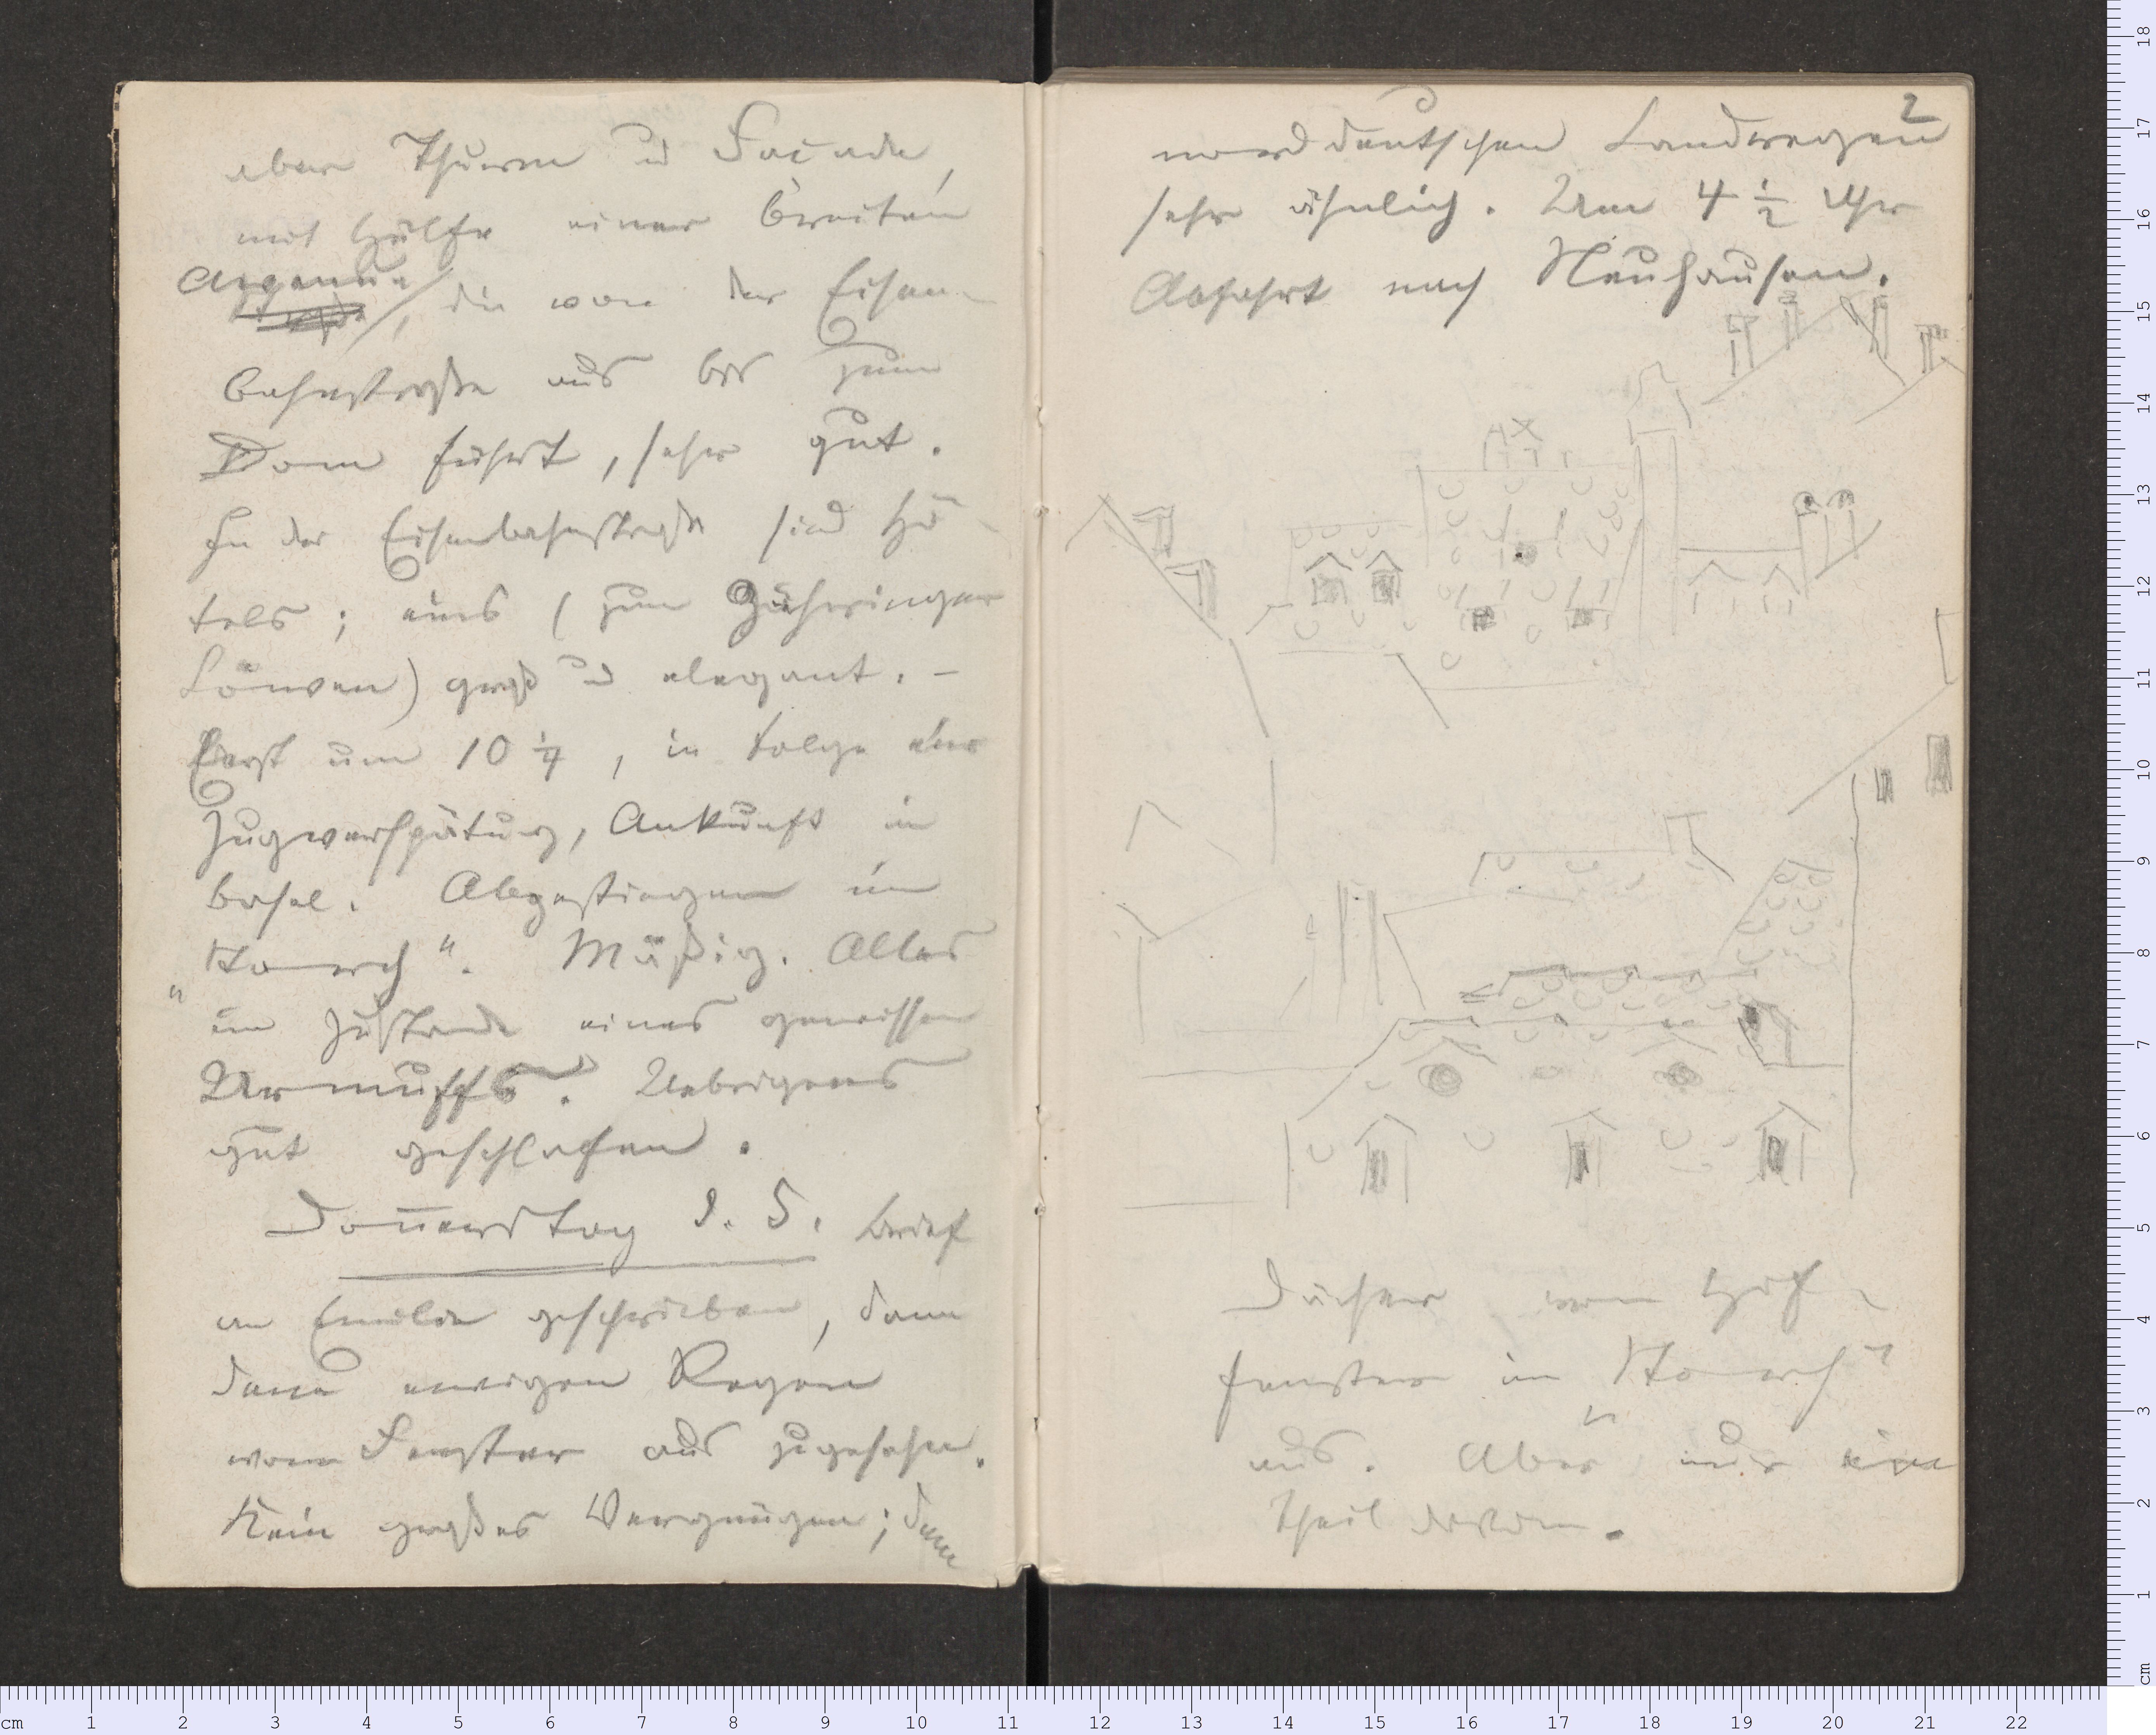 aber Thurm u Façade,
mit Hülfe einer breiten
Avenue
, die von der Eisen-
bahnstraße aus bis zum
Dom führt, sehr gut.
In der Eisenbahnstraße sind Hô-
tels; eins (zum Zähringer
Löwen) groß u elegant. –
Erst um 10 ¼, in Folge der
Zugverspätung, Ankunft in
Basel. Abgestiegen im
„Storch“. Mäßig. Alles
im Zustande eines gewissen
Urmuffs. Uebrigens
gut geschlafen.
Donnerstag d. 5. Brief
an Emilie geschrieben, dann
dem ewigen Regen
vom Fenster aus zugesehn.
Kein großes Vergnügen; dem
2
norddeutschen Landregen
sehr ähnlich. Um 4 ½ Uhr
Abfahrt nach Neuhausen.
Dächer vom Hof-
fenster im „Storch“
aus. Aber nur ein
Theil davon.